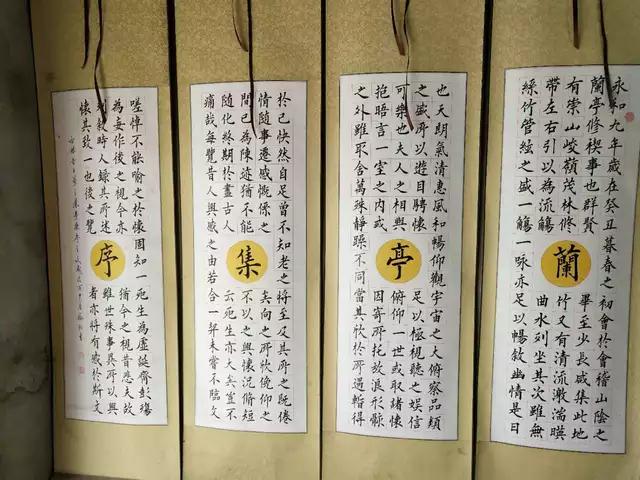 永和九年歲在癸丑暮春之初會於會稽山陰之
蘭亭修稧事也群賢畢至少長咸集此地
有崇山峻嶺茂林修竹又有清流激湍暎
帶左右引以為流觴曲水列坐其次雖無
絲竹管絃之盛一觴一詠亦足以暢敘幽情是日
蘭
也天朗氣清惠風和暢仰觀宇宙之大俯察品類
之盛所以遊目騁懷足以極視聽之娛信
可樂也夫人之相與俯仰一世或取諸懷
抱晤言一室之內或因寄所托放浪形骸
之外雖取舍萬殊靜躁不同當其欣於所遇暫得
亭
於己快然自足曾不知老之將至及其所之既倦
情隨事遷感慨係之矣向之所欣俛仰之
間已為陳迹猶不能不以之興懷況脩短
隨化終期於盡古人云死生亦大矣豈不
痛哉每覽昔人興感之由若合一契未嘗不臨文
集
嗟悼不能喻之於懷固知一死生為虛誕齊彭殤
為妄作後之視今亦猶今之視昔悲夫故
列敘時人錄其所述雖世殊事異所以興
懷其致一也後之覽者亦將有感於斯文
序